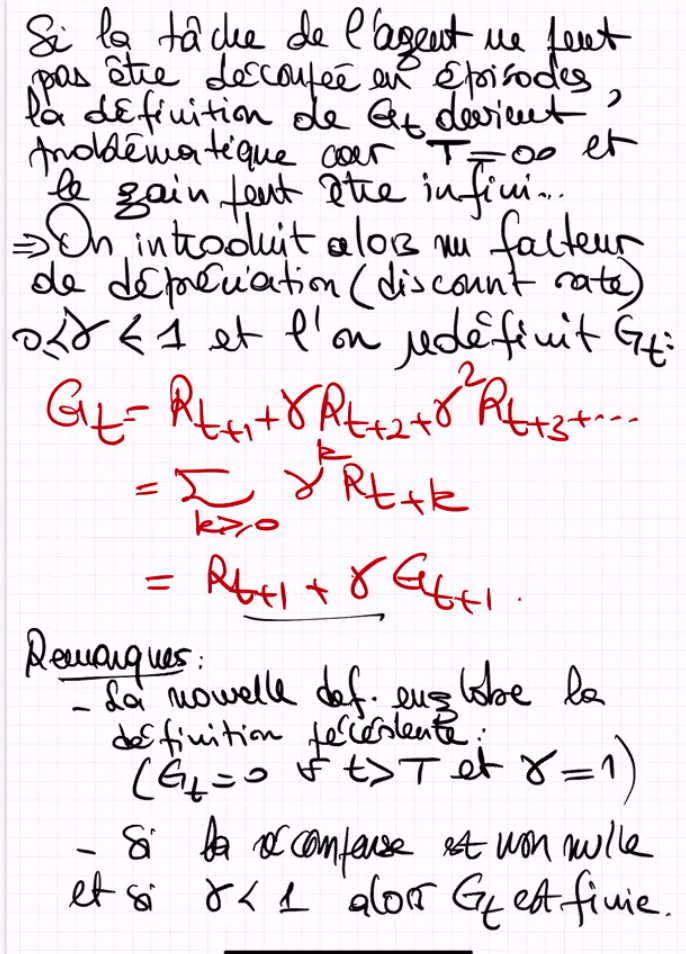 Si la tâche de l'agent ne peut
pas être découpée en épisodes,
la définition de Gt devient
problématique car T=∞ et
le gain peut être infini...
⇒ On introduit alors un facteur
de dépréciation (discount rate)
0≤γ≤1 et l'on redéfinit Gt:
Gt = Rt+1 + γRt+2 + γ²Rt+3 + ...
= Σ k≥0 γ^k Rt+k
= Rt+1 + γ Gt+1.
Remarques:
- La nouvelle def. englobe la
définition précédente:
(Gt=0 ∀ t>T et γ=1)
- Si la récompense est non nulle
et si γ<1 alors Gt est finie.